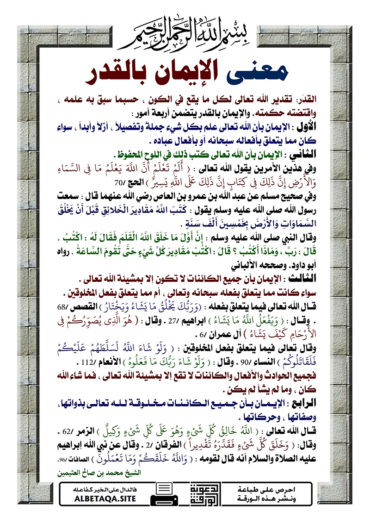 بسم الله الرحمن الرحيم
معنى الإيمان بالقدر
القدر: تقدير الله تعالى لكل ما يقع في الكون ، حسبما سبق به علمه ،
واقتضته حكمته. والإيمان بالقدر يتضمن أربعة أمور :
الأول : الإيمان بأن الله تعالى علم بكل شيء جملة وتفصيلاً ، أزلاً وأبداً ، سواء
كان مما يتعلق بأفعاله سبحانه أو بأفعال عباده .
الثاني : الإيمان بأن الله تعالى كتب ذلك في اللوح المحفوظ .
وفي هذين الأمرين يقول الله تعالى : ( أَلَمْ تَعْلَمْ أَنَّ اللَّهَ يَعْلَمُ مَا فِي السَّمَاءِ
وَالأَرْضِ إِنَّ ذَلِكَ فِي كِتَابٍ إِنَّ ذَلِكَ عَلَى اللَّهِ يَسِيرٌ ) الحج /70
وفي صحيح مسلم عن عبد الله بن عمرو بن العاص رضي الله عنهما قال : سمعت
رسول الله صلى الله عليه وسلم يقول : كَتَبَ اللَّهُ مَقَادِيرَ الْخَلائِقِ قَبْلَ أَنْ يَخْلُقَ
السَّمَاوَاتِ وَالأَرْضَ بِخَمْسِينَ أَلْفَ سَنَةٍ .
وقال النبي صلى الله عليه وسلم : إِنَّ أَوَّلَ مَا خَلَقَ اللَّهُ الْقَلَمَ فَقَالَ لَهُ : اكْتُبْ .
قَالَ : رَبِّ ، وَمَاذَا أَكْتُبُ ؟ قَالَ : اكْتُبْ مَقَادِيرَ كُلِّ شَيْءٍ حَتَّى تَقُومَ السَّاعَةُ . رواه
أبو داود. وصححه الألباني
الثالث : الإيمان بأن جميع الكائنات لا تكون إلا بمشيئة الله تعالى .
سواء كانت مما يتعلق بفعله سبحانه وتعالى ، أم مما يتعلق بفعل المخلوقين .
قال الله تعالى فيما يتعلق بفعله : ( وَرَبُّكَ يَخْلُقُ مَا يَشَاءُ وَيَخْتَارُ ) القصص /68
. وقال : ( وَيَفْعَلُ اللَّهُ مَا يَشَاءُ ) ابراهيم /27 . وقال : ( هُوَ الَّذِي يُصَوِّرُكُمْ فِي
الأَرْحَامِ كَيْفَ يَشَاءُ ) آل عمران /6 .
وقال تعالى فيما يتعلق بفعل المخلوقين : ( وَلَوْ شَاءَ اللَّهُ لَسَلَّطَهُمْ عَلَيْكُمْ
فَلَقَاتَلُوكُمْ ) النساء /90 . وقال : ( وَلَوْ شَاءَ رَبُّكَ مَا فَعَلُوهُ ) الأنعام /112 .
فجميع الحوادث والأفعال والكائنات لا تقع إلا بمشيئة الله تعالى ، فما شاء الله
كان ، وما لم يشأ لم يكن .
الرابع : الإيمان بأن جميع الكائنات مخلوقة لله تعالى بذواتها،
وصفاتها ، وحركاتها .
قال الله تعالى : ( اللَّهُ خَالِقُ كُلِّ شَيْءٍ وَهُوَ عَلَى كُلِّ شَيْءٍ وَكِيلٌ ) الزمر /62 .
وقال: ( وَخَلَقَ كُلَّ شَيْءٍ فَقَدَّرَهُ تَقْدِيراً ) الفرقان /2 . وقال عن نبي الله إبراهيم
عليه الصلاة والسلام أنه قال لقومه : ( وَاللَّهُ خَلَقَكُمْ وَمَا تَعْمَلُونَ ) الصافات /96.
الشيخ محمد بن صالح العثيمين
احرص على طباعة
ونشر هذه الورقة
الدعوية
الورقة
فالدال على الخير كفاعله
ALBETAQA.SITE